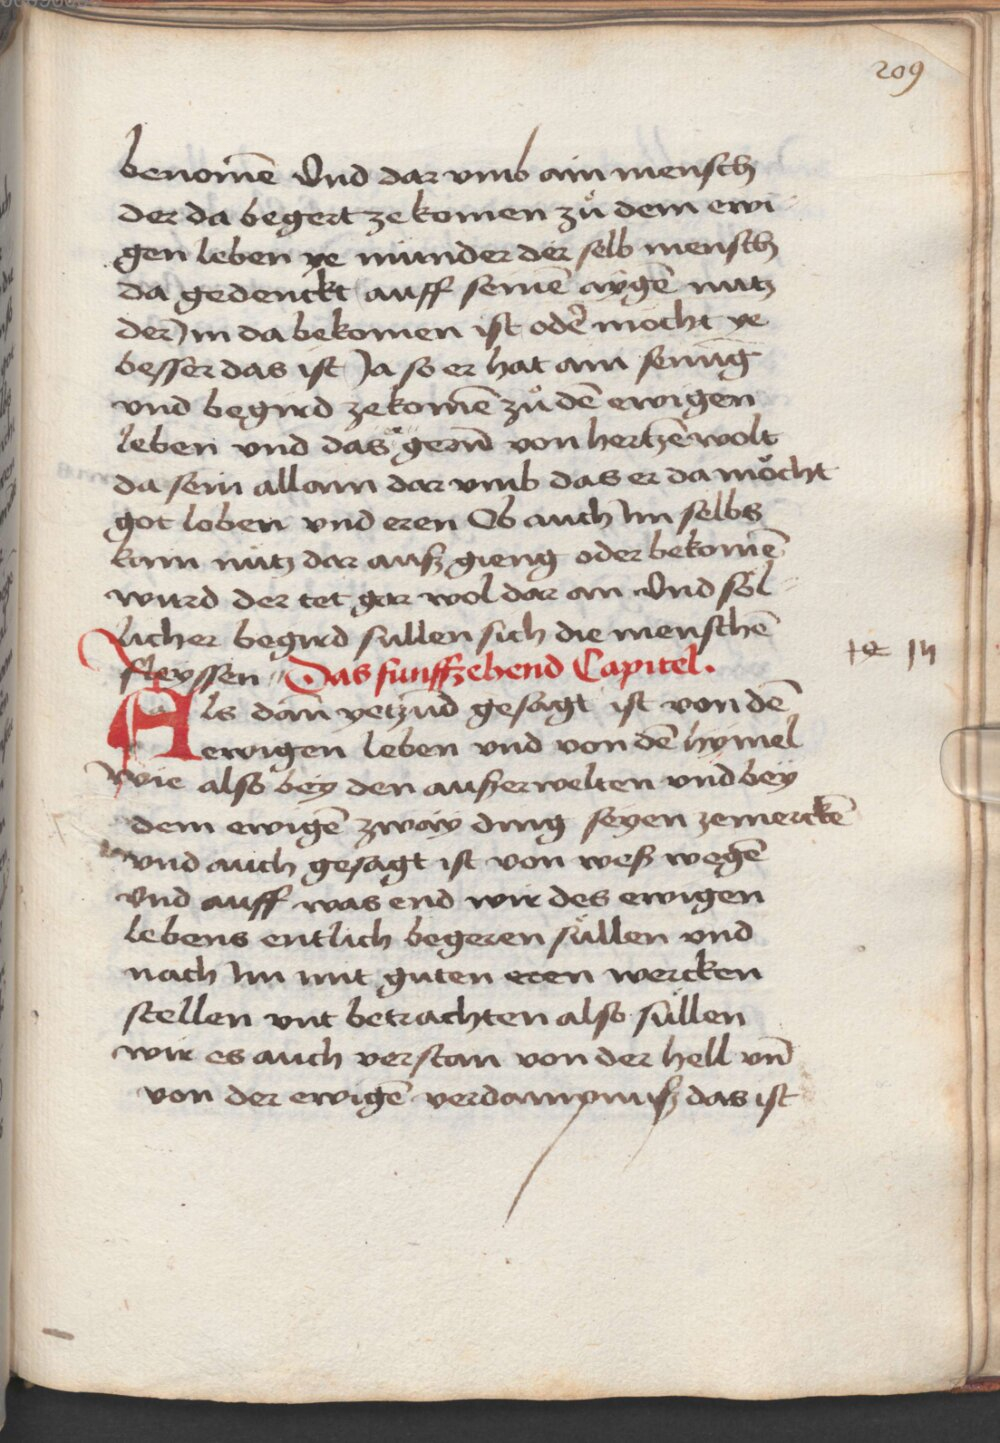 209
benomē Vnd dar vmb ain mensch
der da begert ze komen zů dem ewi
gen leben ye minder der selb mensch
da gedenckt auff seinē aygē nutz
der Im da bekomen ist odˀ mocht ye
besser das ist Ja so er hat ain
vnd begird zekomē zů dē ewigen
leben vnd das gern von hertzē wolt
da sein allain dar vmb das er da möcht
got loben vnd eren Ob auch Im selbs
kain nutz dar auß gieng oder bekomē
wurd der tet gar wol dar an Vnd söl
licher begird sullen sich die menschē
fleyssen Das funffzehend Capitel.
Als dan yetzūd gesagt ist von dē
ewigen leben vnd von dē hymel
wie also bey den außerwelten vnd bey
dem ewigē zway ding seyen zemerckē
vnd auch gesagt ist von weß wegē
Vnd auff was end wir des ewigen
lebens entlich begeren süllen vnd
nach Im mit guten eren wercken
stellen vnt betrachten also süllen
wir es auch verstan von der hell vn̄
von der ewigē verdampnuß das ist